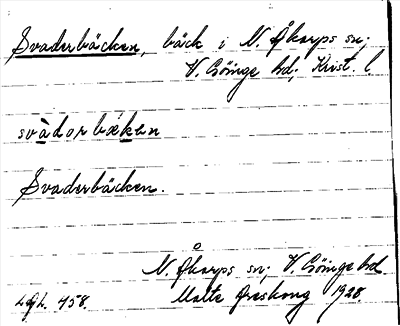 Svaderbäcken, bäck i N. Åkarps sn;
V. Göinge hd; Krist. l.
svàdorbæken
Svaderbäcken.
N. Åkarps sn; V. Göinge hd
Malte Areskoug 1928.
458.